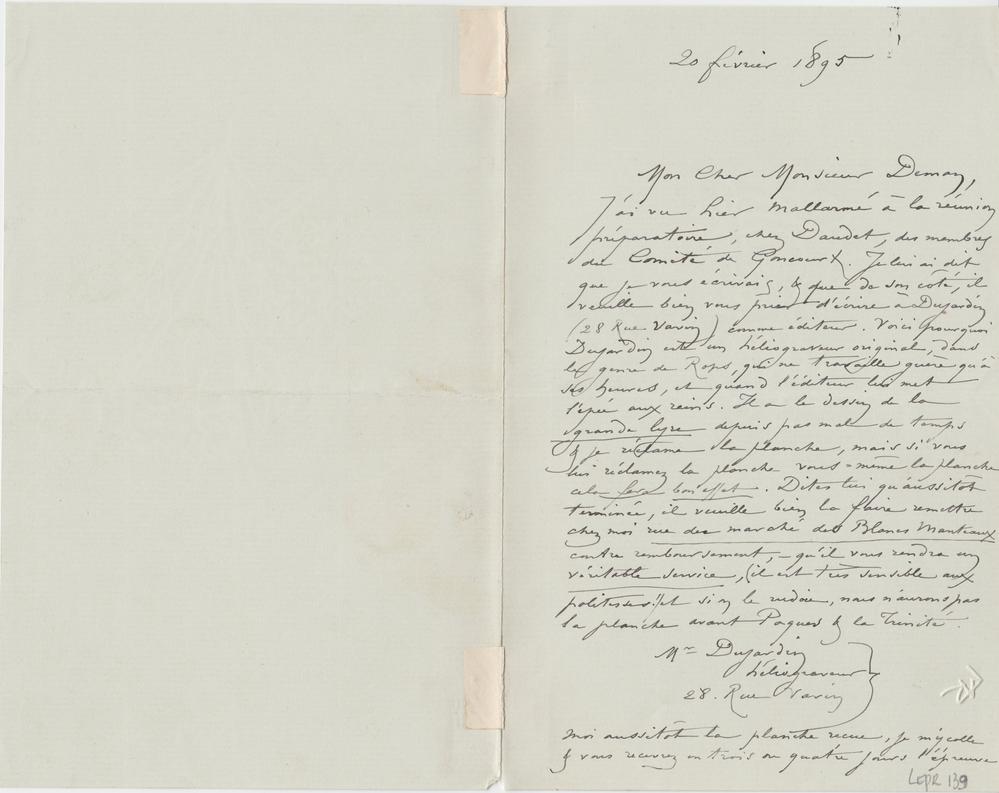 20 février 1895
Mon Cher Monsieur Deman,
J'ai vu hier Mallarmé à la réunion
préparatoire, chez Daudet, des membres
du Comité de Goncourt. Je lui ai dit
que je vous écrivais, & que de son côté, il
veuille bien vous prier d'écrire à Dujardin
(28 Rue Vavin) comme éditeur. Voici pourquoi
Dujardin est un héliograveur original, dans
le genre de Rops, qui ne travaille guère qu'à
ses heures, et quand l'éditeur lui met
l'épée aux reins. Il a le dessin de la
grande lyre depuis pas mal de temps
& je réclame la planche, mais si vous
lui réclamez la planche vous-même la planche
cela fera bon effet. Dites lui qu'aussitôt
terminée, il veuille bien la faire remettre
chez moi rue des marché des Blancs Manteaux
contre remboursement, - qu'il vous rendra un
véritable service, (il est très sensible aux
politesses!) et si on le rudoie, nous n'aurons pas
la planche avant Paques & la Trinité.
Mr Dujardin
héliograveur
28. Rue Vavin
Moi aussitôt la planche recue, je m'y colle
& vous recevrez en trois ou quatre jours l'épreuve
LEPR 139